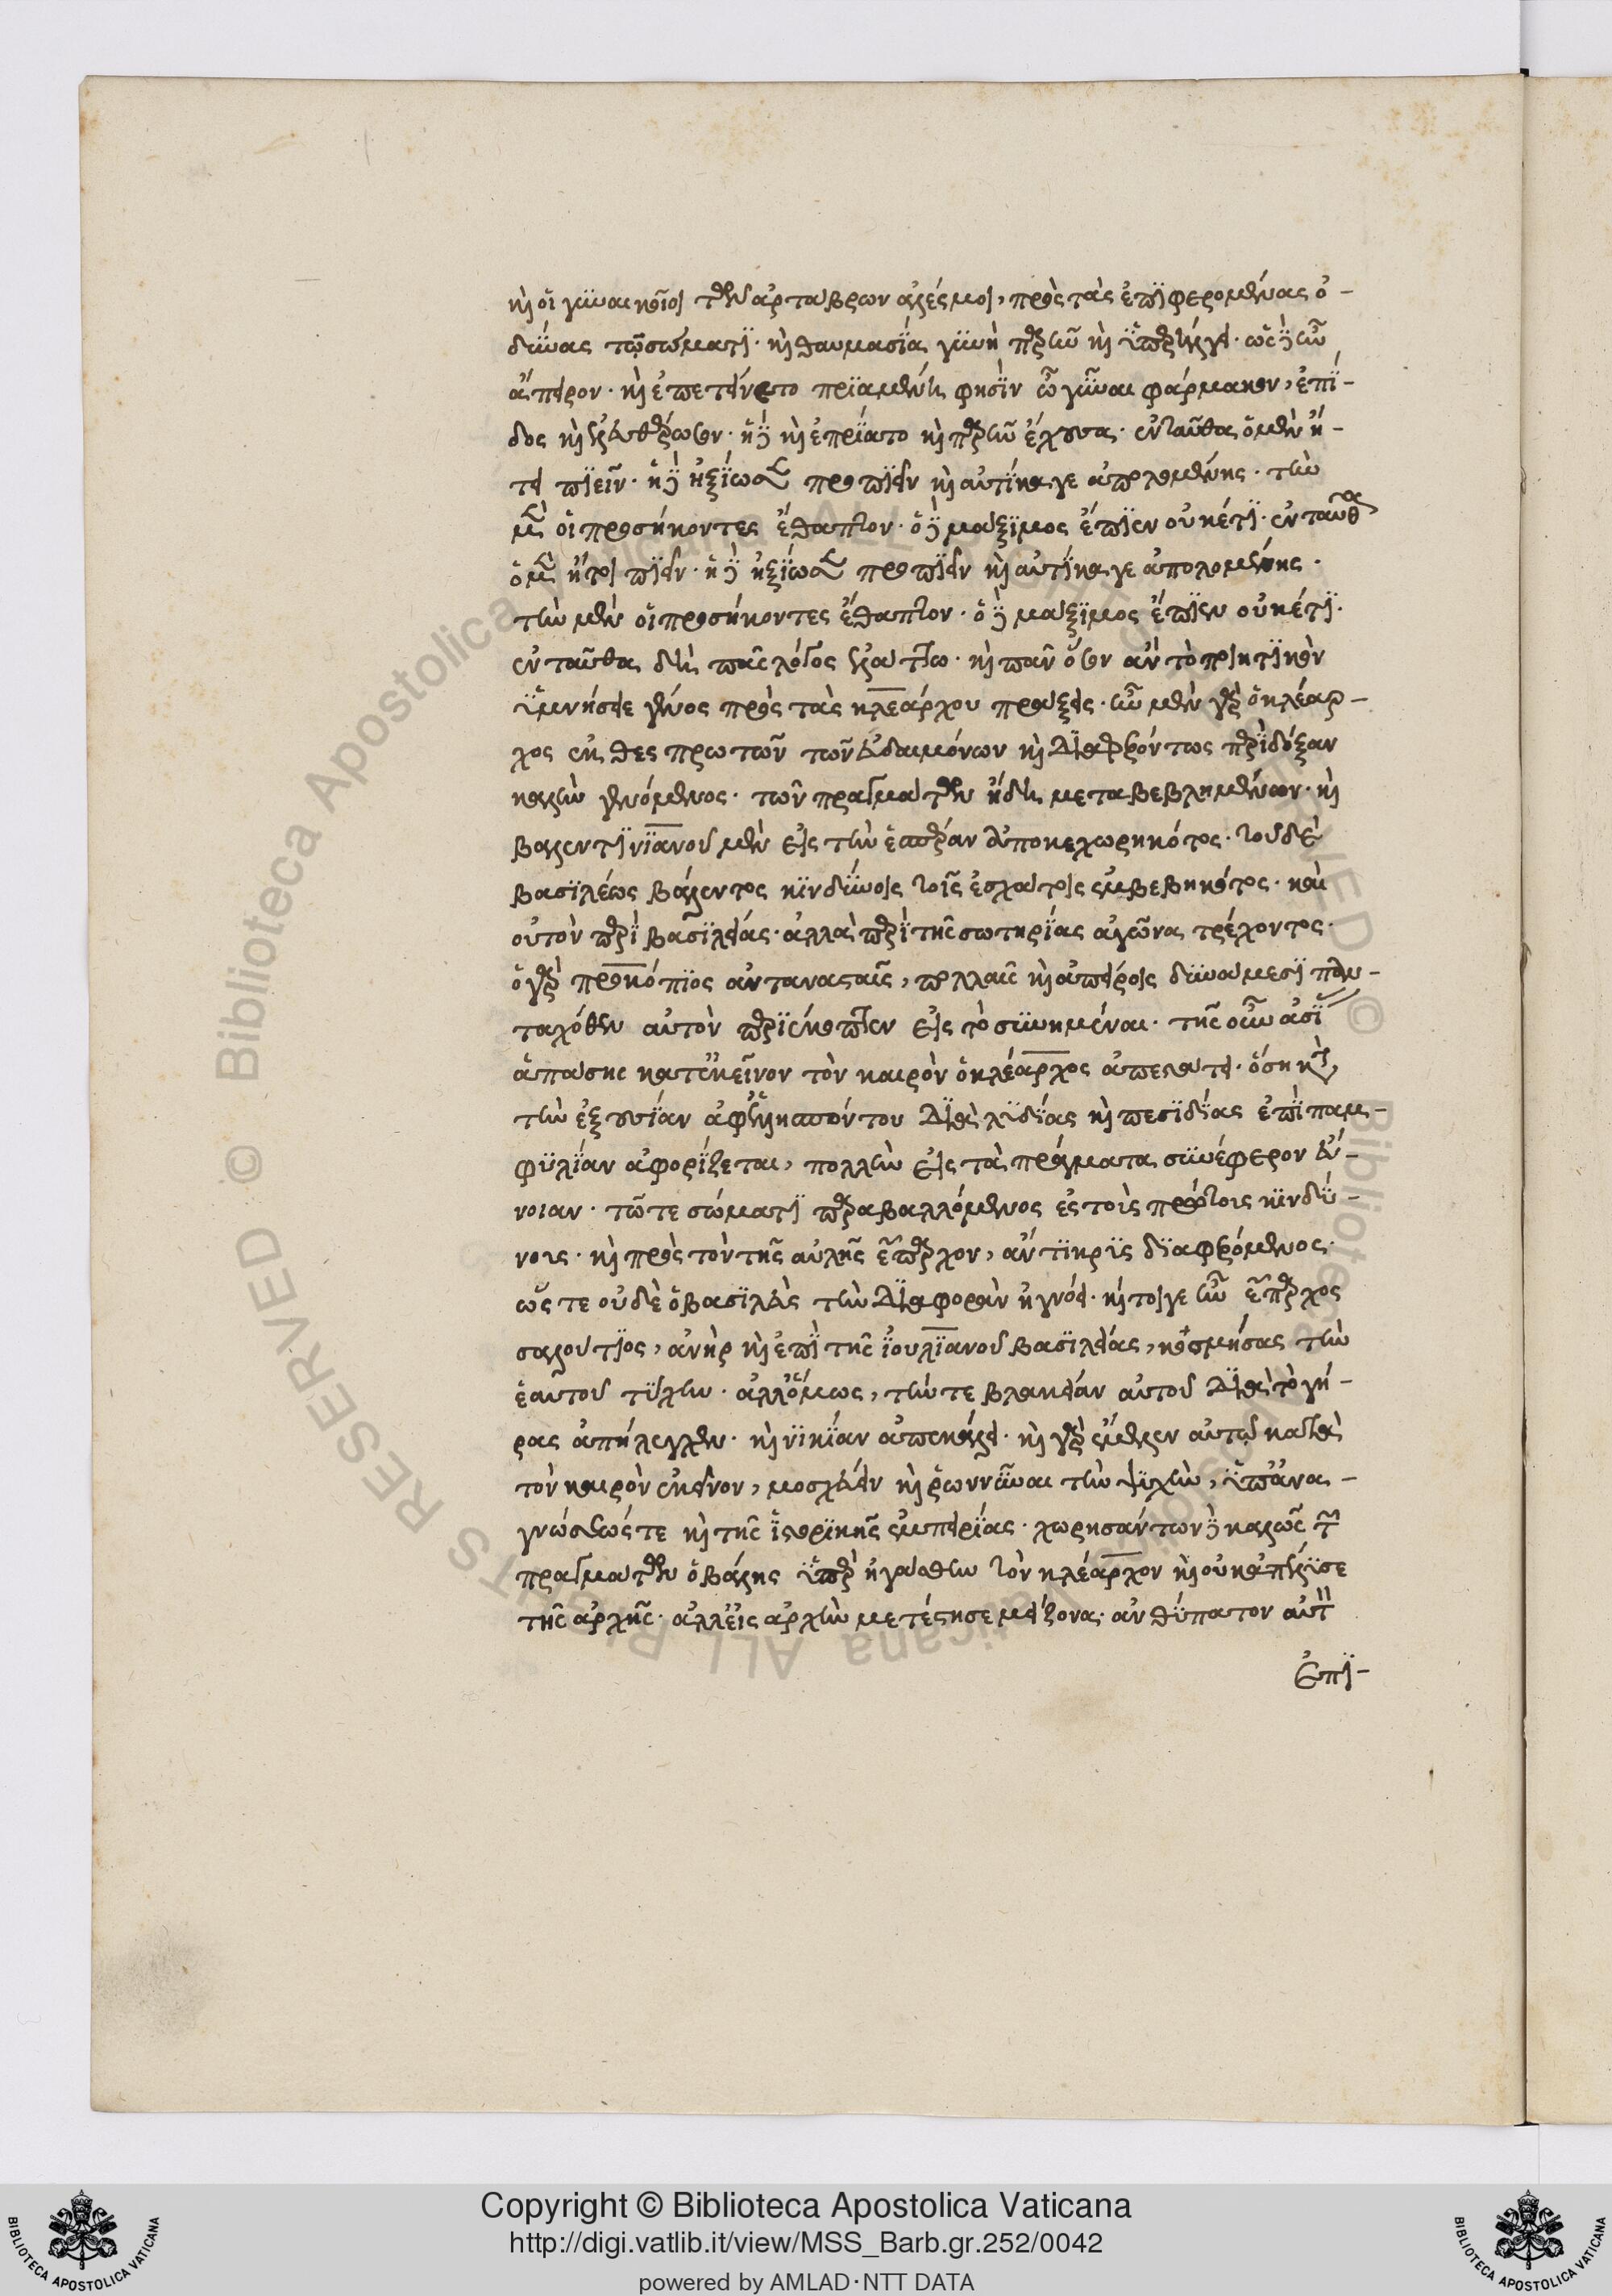 κὶ οἱ γυναικεῖοι τῶν ἀρταβρων ἀλεσμοὶ, πρὸς τὰς ἐπιφερομένας ὀ-
δύνας τῷ σώματι. κὶ θαυμασία γυνὴ παρῆν κὶ ὑπερήλγει. ὡς δ' ἦν
ἄπειρον. κὶ ἐπετείνετο πριαμένη φησὶν ὦ γύναι φάρμακον, ἐπί-
δος κὶ ἐλευθέρωσον. ἡ δ' κὶ ἐπρίατο κὶ παρῆν ἔχουσα. ἐνταῦθα ὁ μὲν ἤ-
τει πιεῖν. ἡ δ' ἠξίωσε προπιεῖν κὶ αὐτίκα γε ἀπολομένης. τὴν
μὲν οἱ προσήκοντες ἔθαπτον. ὁ δ' μάξιμος ἔπιεν οὐκέτι. ἐνταῦθα
ὁ μὲν ἤτει πιεῖν. ἡ δ' ἠξίωσε προπιεῖν κὶ αὐτίκα γε ἀπολομένης.
τὴν μὲν οἱ προσήκοντες ἔθαπτον. ὁ δ' μάξιμος ἔπιεν οὐκέτι.
ἐνταῦθα δὴ πᾶς λόγος ἐλάττω. κὶ πᾶν ὅσον ἀν τὸ ποιητικὸν
ὑμνήσειε γένος πρὸς τὰς κλεάρχου πράξεις. ἦν μὲν γὰρ ὁ κλέαρ-
χος ἐκ θεσπρωτῶν τῶν εὐδαιμόνων κὶ διαφερόντως περὶ δόξαν
καλὴν γενόμενος. τῶν πραγμάτων ἤδη μεταβεβλημένων. κὶ
βαλεντινιανοῦ μὲν εἰς τὴν ἑσπέραν ἀποκεχωρηκότος. τοῦ δὲ
βασιλέως βάλεντος κινδύνοις τοῖς ἐσχάτοις ἐμβεβηκότος. καὶ
οὐ τὸν περὶ βασιλείας. ἀλλὰ περὶ τῆς σωτηρίας ἀγῶνα τρέχοντος.
ὁ γὰρ προκόπιος ἀνταναστὰς, πολλαῖς κὶ ἀπείροις δυνάμεσι παν-
ταχόθεν αὐτὸν περιέκοπτεν εἰς τὸ συνημέναι. τῆς οὖν ἀσί
ἁπάσης κατ' ἐκεῖνον τὸν καιρὸν ὁ κλέαρχος ἀπελάτει. ὅση κτ
τὴν ἐξουσίαν ἀφ' ἑλλησπόντου διὰ λυδίας κὶ πεσιδίας ἐπὶ παμ-
φυλίαν ἀφορίζεται, πολλὴν εἰς τὰ πράγματα συνέφερον εὔ-
νοιαν. τῶ τε σώματι παραβαλλόμενος ἐς τοὶς πρώτοις κινδύ-
νοις. κὶ πρὸς τὸν τῆς αὐλῆς ἔπαρχον, ἀντικρὶς διαφερόμενος.
ὥστε οὐδὲ ὁ βασιλεὺς τὴν διαφορὰν ἠγνόει. κήτοιγε ἦν ἔπαρχος
σαλούτιος, ἀνὴρ κὶ ἐπὶ τῆς ἰουλιανοῦ βασιλείας, κοσμήσας τὴν
ἑαυτοῦ τύχην. ἀλλ' ὅμως, τήν τε βλακείαν αὐτοῦ διὰ τὸ γή-
ρας ἀπήλεγχεν. κὶ νικίαν ἀπεκάλει. κὶ γὰρ ἔμελεν αὐτῷ κατὰ
τὸν καιρὸν ἐκεῖνον, μοσχεύειν κὶ ῥωννῦναι τὴν ψυχὴν, ὑπ' ἀνα-
γνώσεώς τε κὶ τῆς ἱστορικῆς ἐμπειρίας. χωρησάντων δ' καλῶς τῶν
πραγμάτων ὁ βάλης ὑπερηγάσθη τὸν κλέαρχον κὶ οὐκ ἀπέλυσε
τῆς ἀρχῆς. ἀλλ' εἰς ἀρχὴν μετέστησε μείζονα. ἀνθύπατον αὐτ
ἐπι-
Copyright © Biblioteca Apostolica Vaticana
http://digi.vatlib.it/view/MSS_Barb.gr.252/0042
powered by AMLAD·NTT DATA
BIBLIOTECA APOSTOLICA VATICANA
BIBLIOTECA APOSTOLICA VATICANA